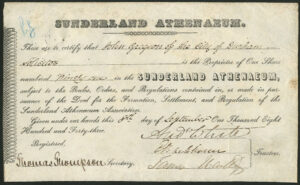 SUNDERLAND ATHENAEUM.
These are to certify that John Gregson of the City of Durham
Solicitor is the Proprietor of One Share
numbered Ninety six in the SUNDERLAND ATHENAEUM,
subject to the Rules, Orders, and Regulations contained in, or made in pursuance
of the Deed for the Formation, Settlement, and Regulation of the
Sunderland Athenaeum Association.
Given under our hands this day of September One Thousand Eight
Hundred and Forty-three.
Registered,
Thomas Thompson Secretary.
Trustees.